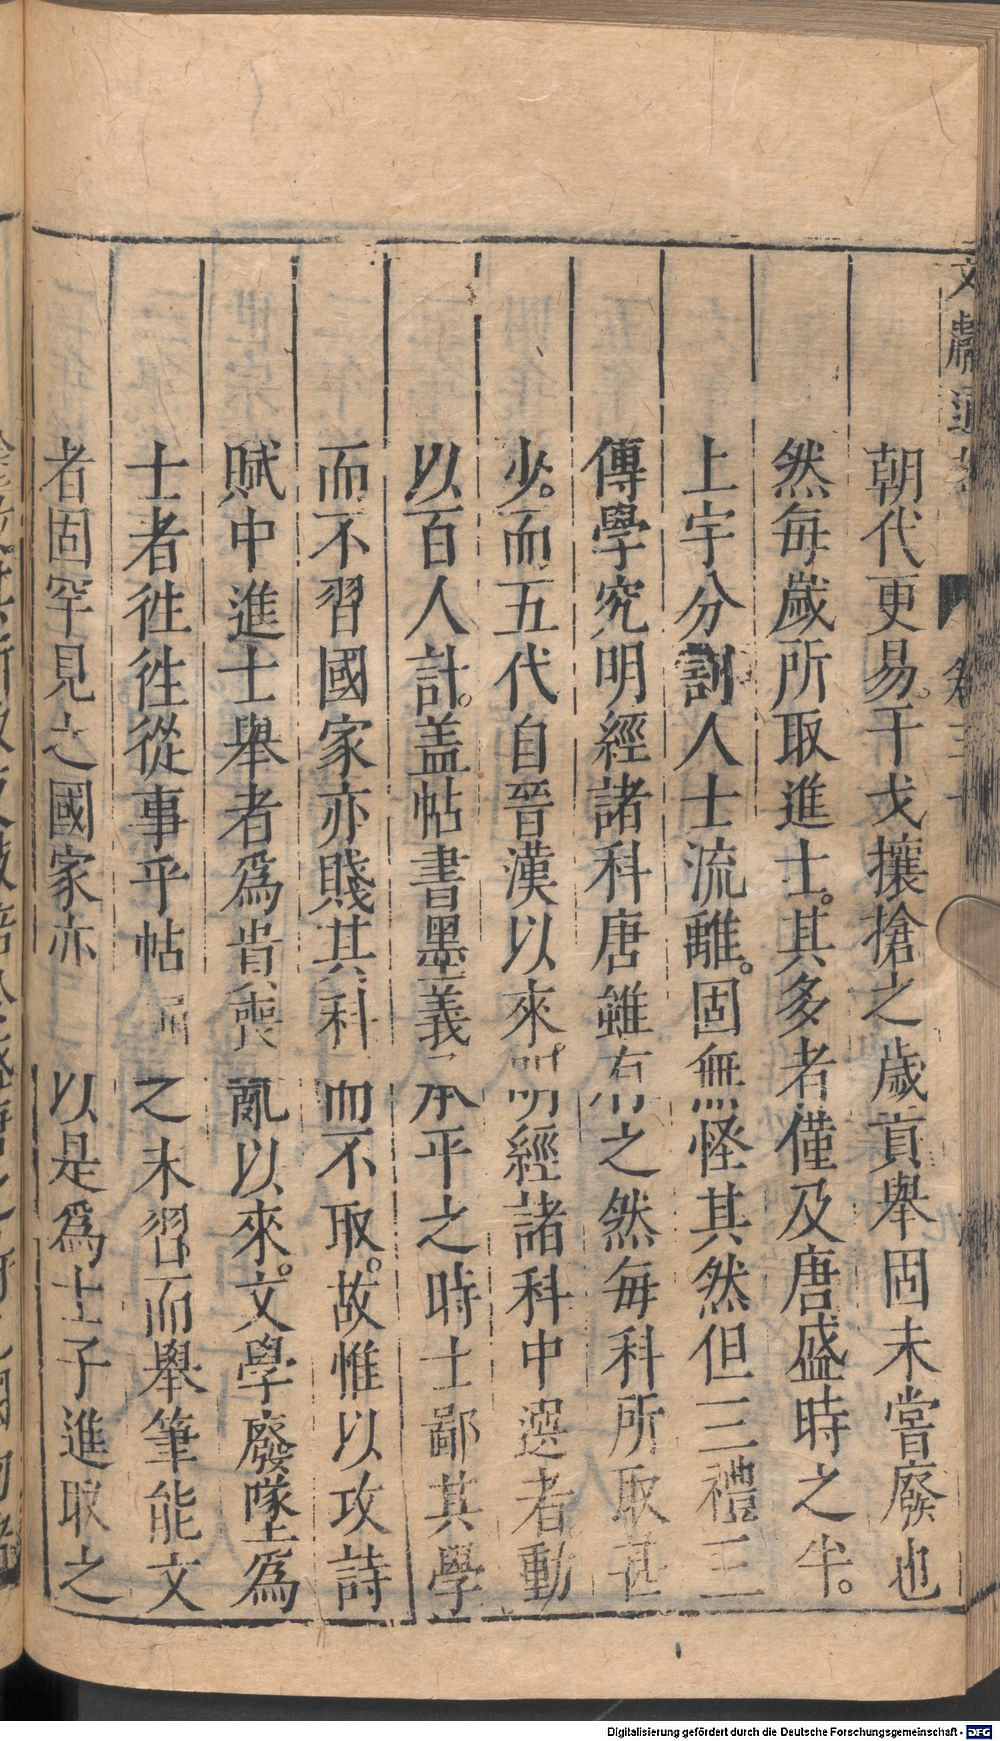 文獻通考 卷三十
朝代更易。干戈攘搶之歲貢舉固未嘗廢也
然每歲所取進士。其多者僅及唐盛時之半。
上宇分割人士流離。固無怪其然但三禮三
傳學究明經諸科唐雖有之然每科所取甚
少。而五代自晉漢以來。明經諸科中選者。動
以百人計。盖帖書墨義承平之時士鄙其學
而不習國家亦賤其科而不取。故惟以攻詩
賦中進士舉者爲貴喪亂以來。文學廢墜爲
士者徃徃從事乎帖之末習而舉筆能文
者固罕見之國家亦以是爲士子進取之
Digitalisierung gefördert durch die Deutsche Forschungsgemeinschaft - DFG